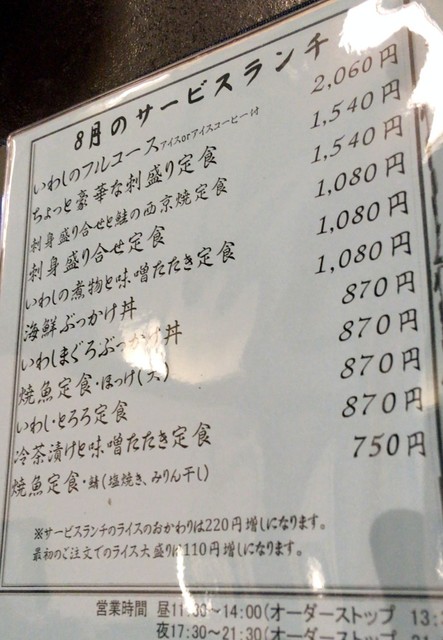 8月のサービスランチ
いわしのフルコース アイスorアイスコーヒー付 2,060円
ちょっと豪華な刺盛り定食 1,540円
刺身盛り合せと鮭の西京焼定食 1,540円
刺身盛り合せ定食 1,080円
いわしの煮物と味噌たたき定食 1,080円
海鮮ぶっかけ丼 1,080円
いわしまぐろぶっかけ丼 870円
焼魚定食・ほっけ(大) 870円
いわし・とろろ定食 870円
冷茶漬けと味噌たたき定食 870円
焼魚定食・鯖(塩焼き、みりん干し) 750円
※サービスランチのライスのおかわりは220円増しになります。
最初のご注文でのライス大盛りは110円増しになります。
営業時間 昼11:30～14:00(オーダーストップ 13:
夜17:30～21:30(オーダーストップ